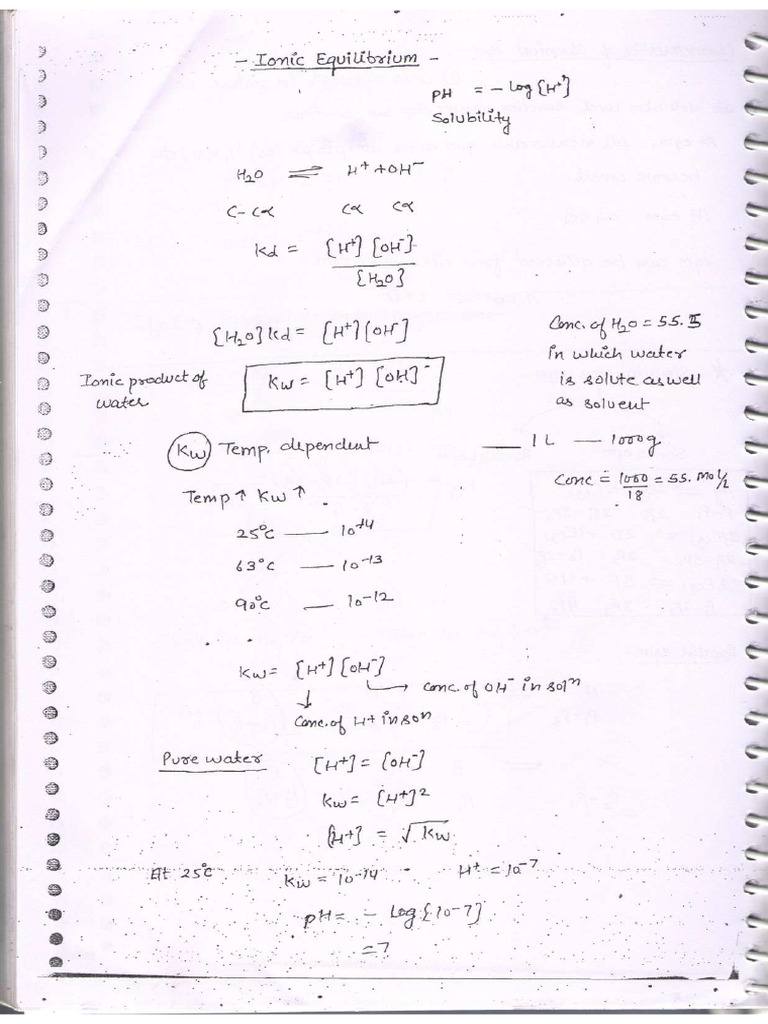 - Ionic Equilibrium -
pH = - log [H+]
Solubility
H2O ⇌ H+ + OH-
C-Cα Cα Cα
Kd = [H+] [OH-]
[H2O]
[H2O] Kd = [H+] [OH-]
Ionic product of
water
Kw = [H+] [OH]-
Conc. of H2O = 55.5
in which water
is solute as well
as solvent
— 1 L — 1000g
Conc = 1000/18 = 55. mol/L
Kw Temp. dependent
Temp ↑ Kw ↑
25°C — 10-14
63°C — 10-13
90°C — 10-12
Kw = [H+] [OH-]
→ Conc. of OH- in soln
↓
Conc. of H+ in soln
Pure water [H+] = [OH-]
Kw = [H+]2
[H+] = √Kw
At 25°C Kw = 10-14 H+ = 10-7
pH = - log [10-7]
= 7